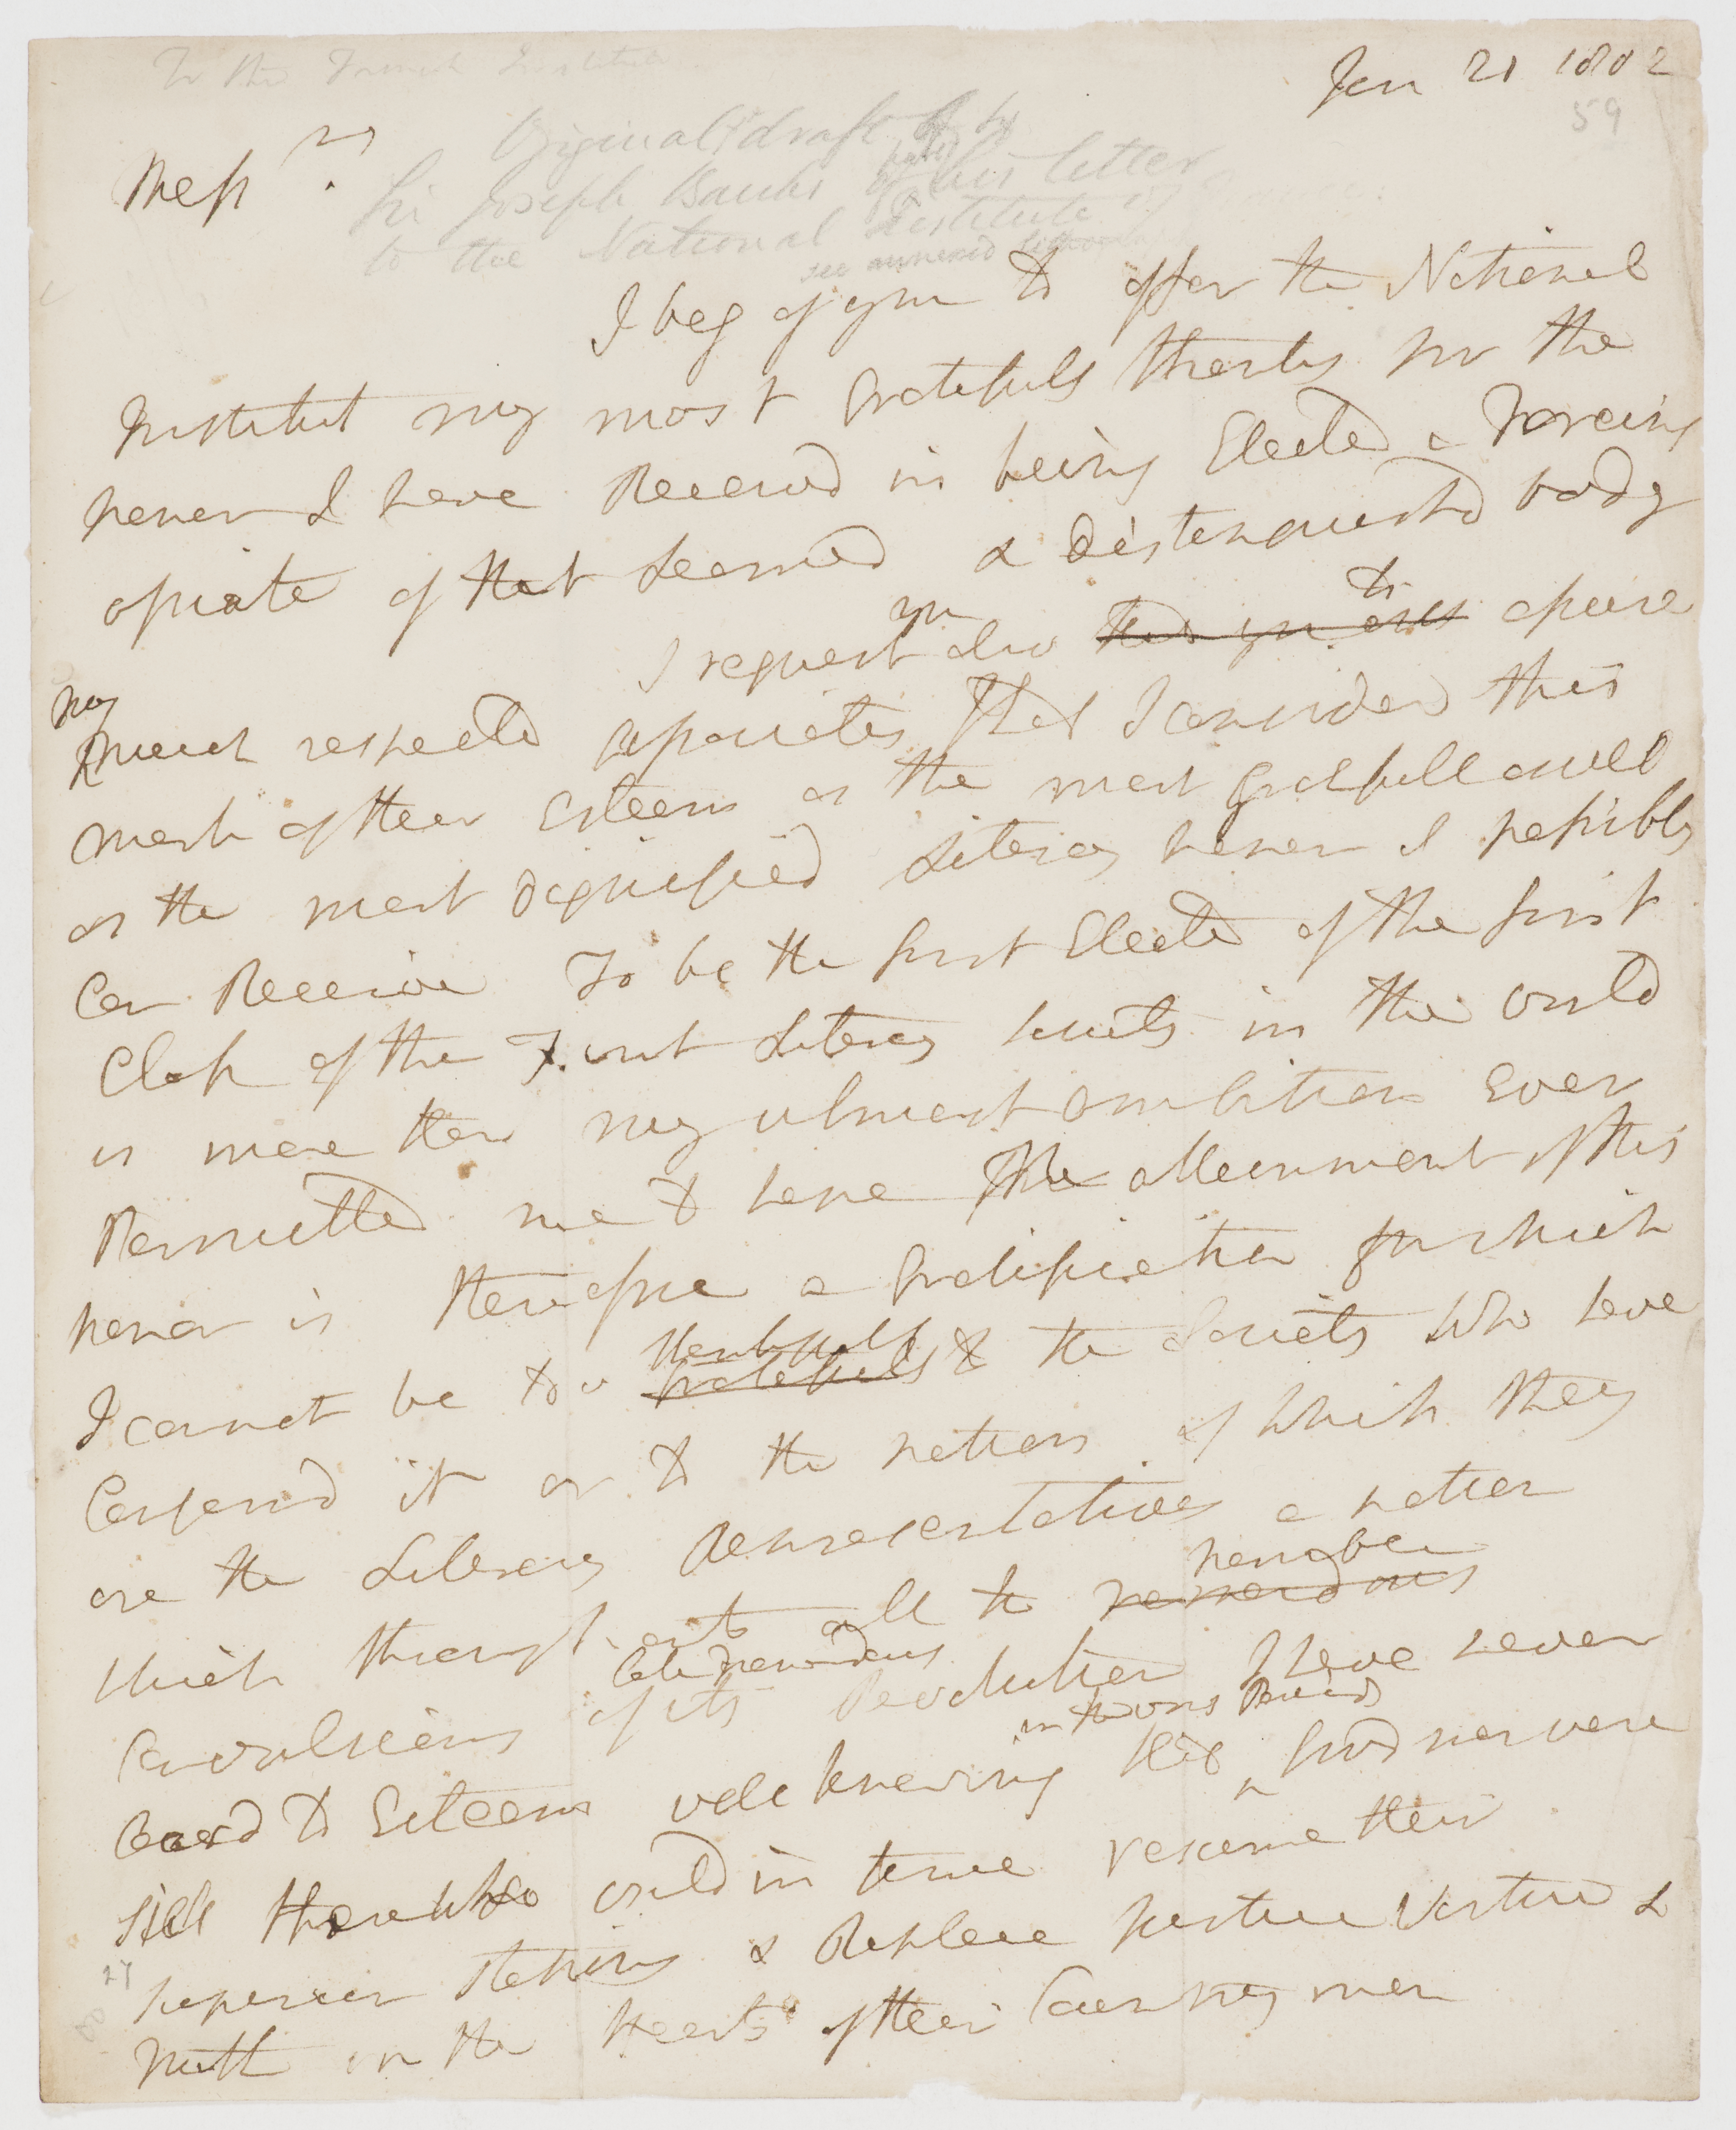 To the French Institute
Jan 21 1802
59
Original draft of by
Sir Joseph Banks of his letter
to the National Institute of
see annexed
Mess rs .
I beg of you to offer the National
Institut my most Gratefull thanks for the
honor I have Receivd in being Elected a Foreing
assciate of that Learned & distinguishd body
I request you also to assure
my
much respected associates that I consider this
mark of their Esteem as the most Gratefull as well
as the most dignified Literary honor I possibly
Can Receive To be the first Elected of the first
Class of the First Literary Society in the world
is more than my utmost ambition Ever
Permitted me to hope The attainment of this
honor is therefore a Gratification for which
I cannot be too thankfull
Gratefull to the Society who have
Conferrd it or to the nation of which they
are the Literary Representatives a nation
which through out all the
horrible
Convulsions of its late tremendous Revolution I have never
in the worst Periods
Ceasd to Esteem well knowing that good men were
still there who would in time resume their
superior stations & Replace Justice Virtue &
27
truth in the hearts of their Country men